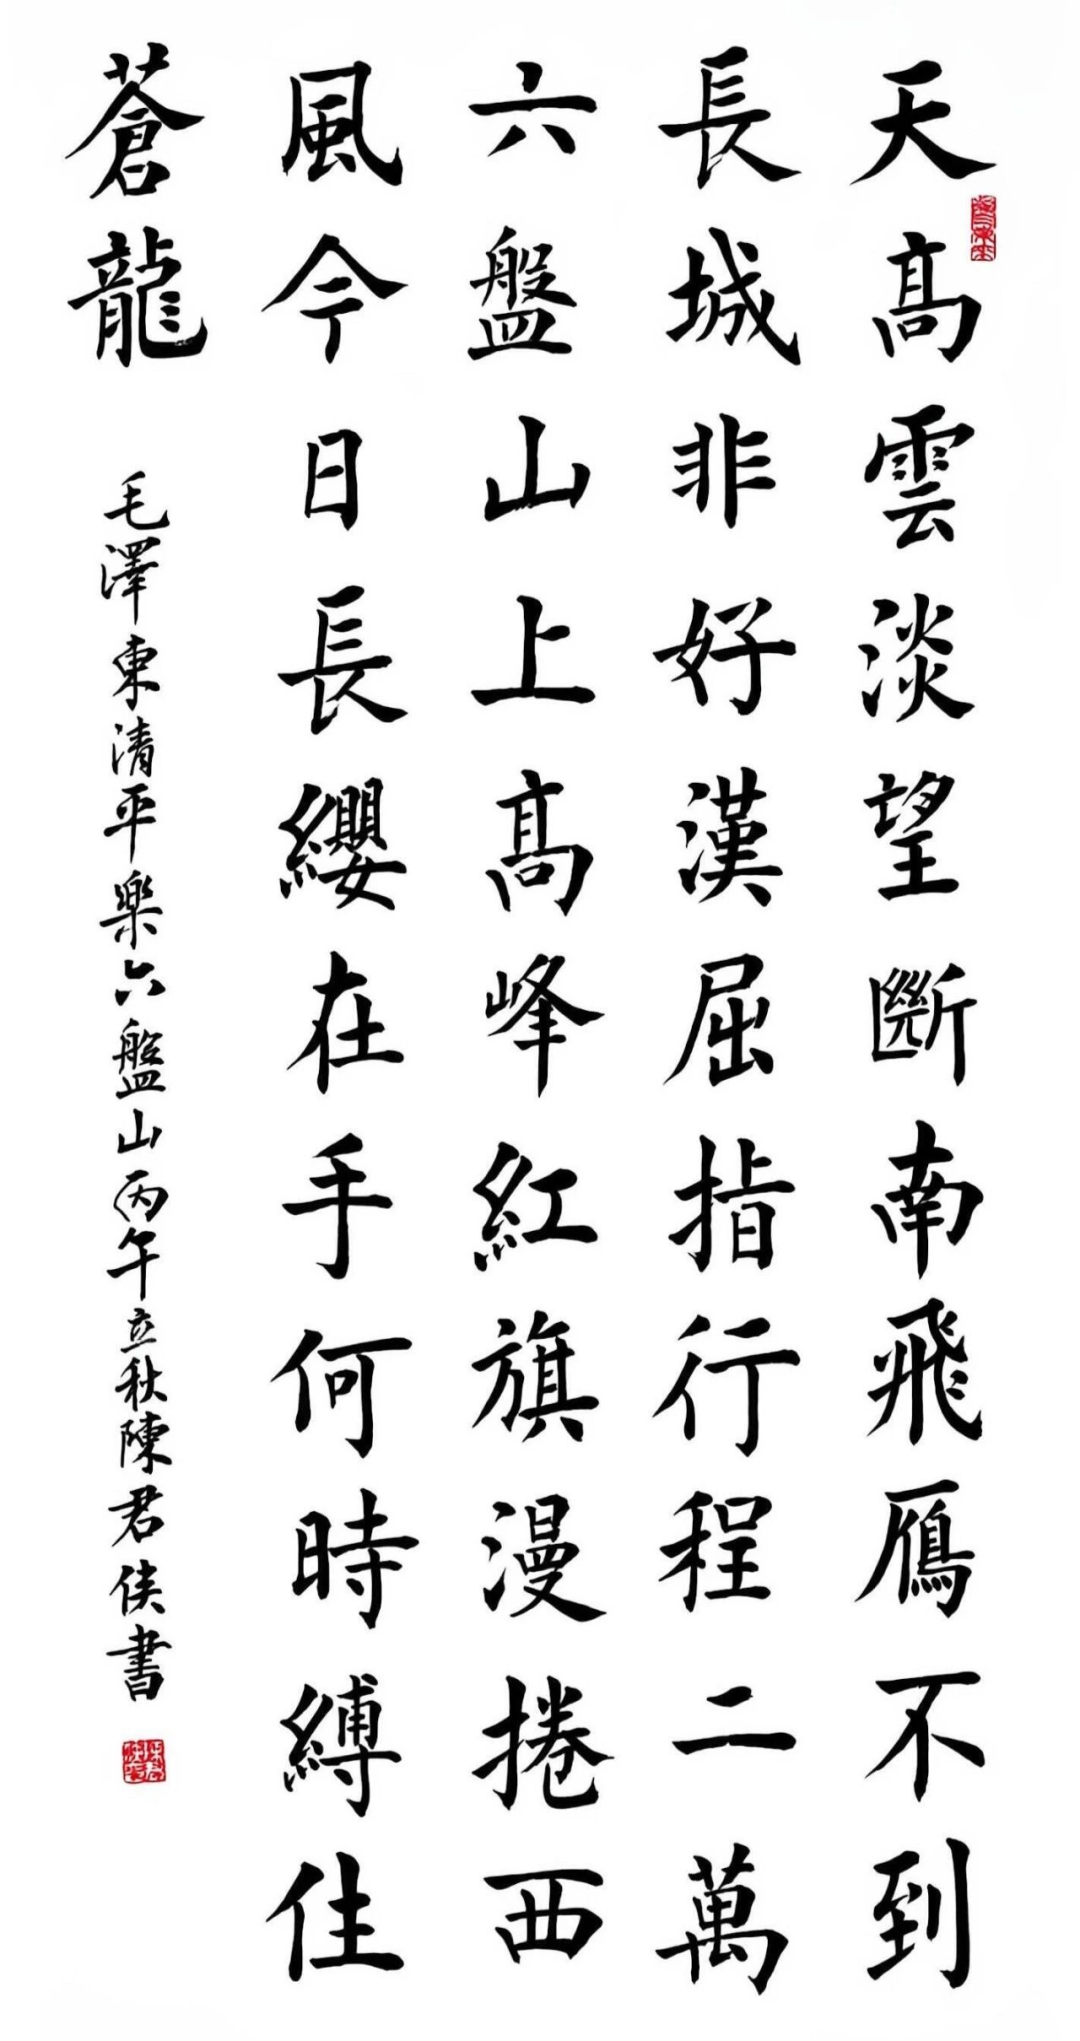 天高雲淡望斷南飛鴈不到
長城非好漢屈指行程二萬
六盤山上高峰紅旗漫捲西
風今日長纓在手何時縛住
蒼龍
毛澤東清平樂六盤山丙午立秋陳君俠書